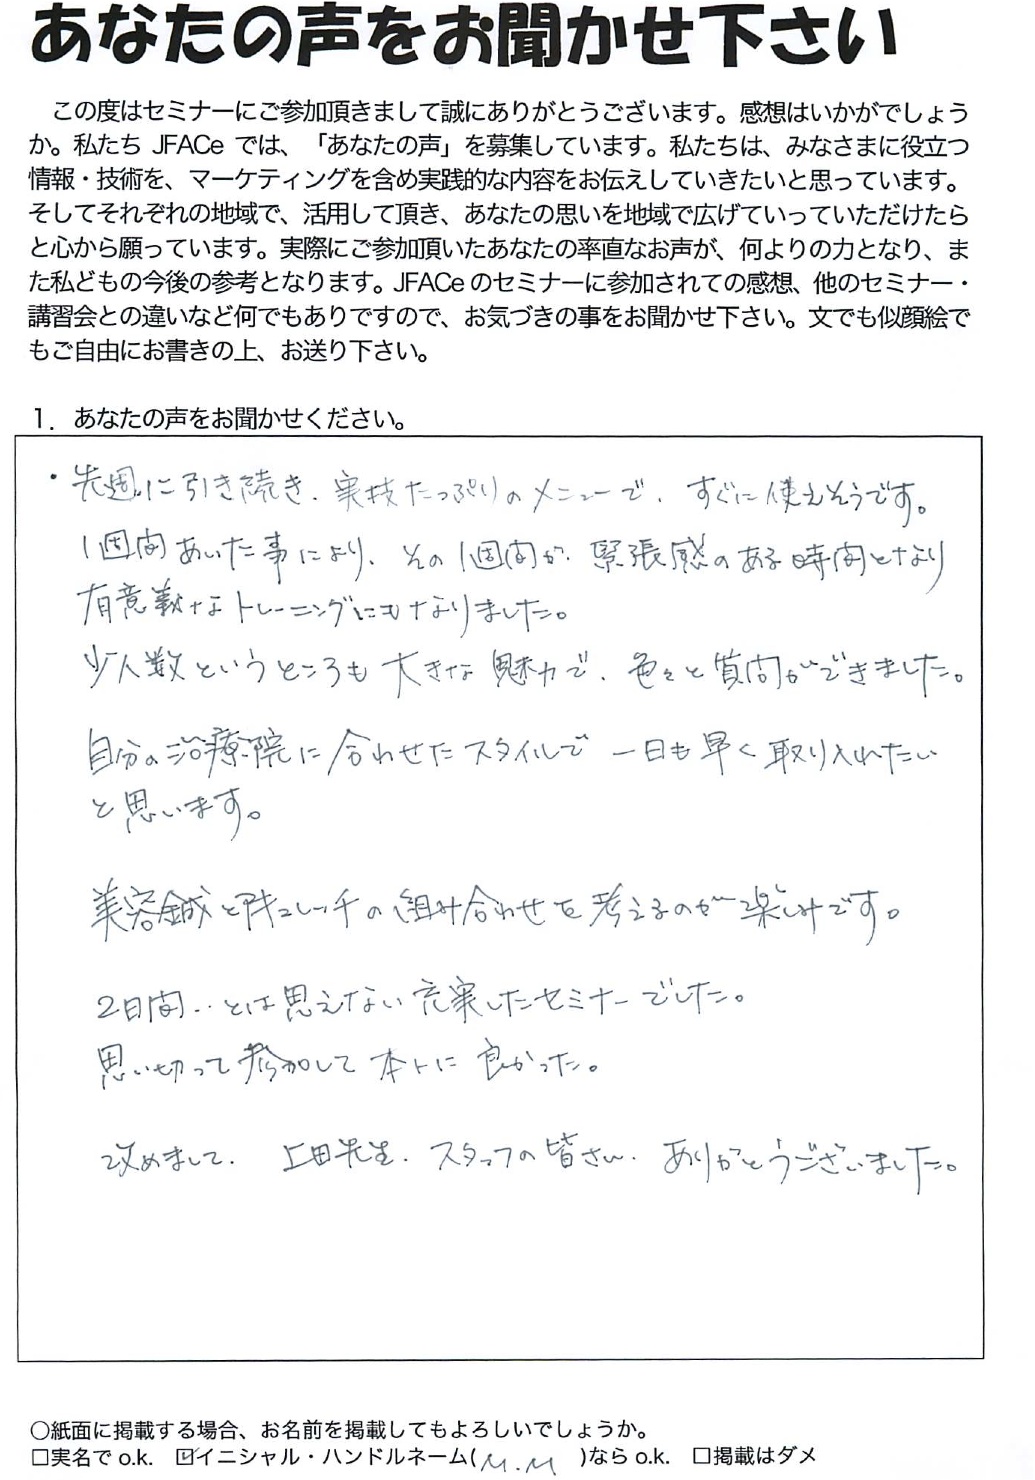 あなたの声をお聞かせ下さい
この度はセミナーにご参加頂きまして誠にありがとうございます。感想はいかがでしょう
か。私たち JFACe では、「あなたの声」を募集しています。私たちは、みなさまに役立つ
情報・技術を、マーケティングを含め実践的な内容をお伝えしていきたいと思っています。
そしてそれぞれの地域で、活用して頂き、あなたの思いを地域で広げていっていただけたら
と心から願っています。実際にご参加頂いたあなたの率直なお声が、何よりの力となり、ま
た私どもの今後の参考となります。JFACe のセミナーに参加されての感想、他のセミナー・
講習会との違いなど何でもありですので、お気づきの事をお聞かせ下さい。文でも似顔絵で
もご自由にお書きの上、お送り下さい。
1. あなたの声をお聞かせください。
・先週に引き続き、実技たっぷりのメニューで、すぐに使えそうです。
1週間あいた事により、その1週間が、緊張感のある時間となり
有意義なトレーニングにもなりました。
少人数というところも大きな魅力で、色々と質問ができました。
自分の治療院に合わせたスタイルで一日も早く取り入れたい
と思います。
美容鍼とアキュレッチの組み合わせを考えるのが楽しみです。
2日間‥とは思えない充実したセミナーでした。
思い切って参加して本トに良かった。
改めまして、上田先生、スタッフの皆さん、ありがとうございました。
○紙面に掲載する場合、お名前を掲載してもよろしいでしょうか。
□実名で o.k. ☑イニシャル・ハンドルネーム( M.M )なら o.k. □掲載はダメ